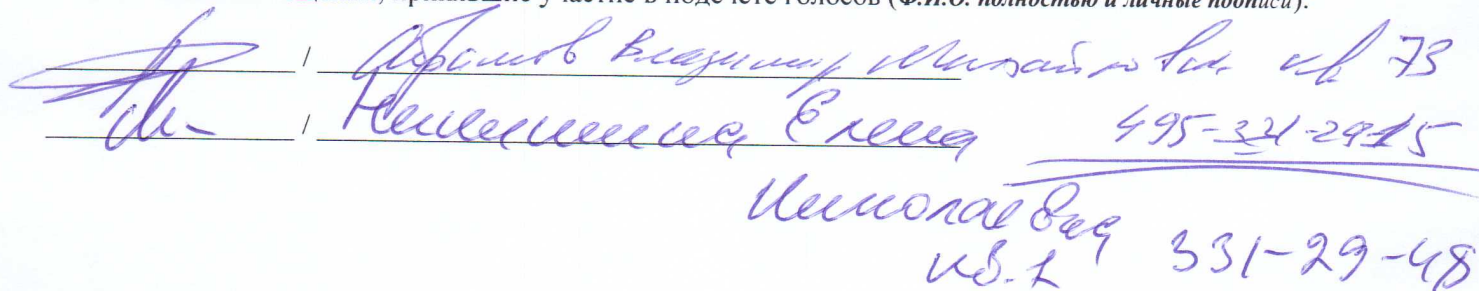 принявшие участие в подсчете голосов (Ф.И.О. полностью и личные подписи):
/ Абрамов Владимир Михайлович кв 73
/ Елена 495-331-2915
Николаевна
кв. 1 331-29-48